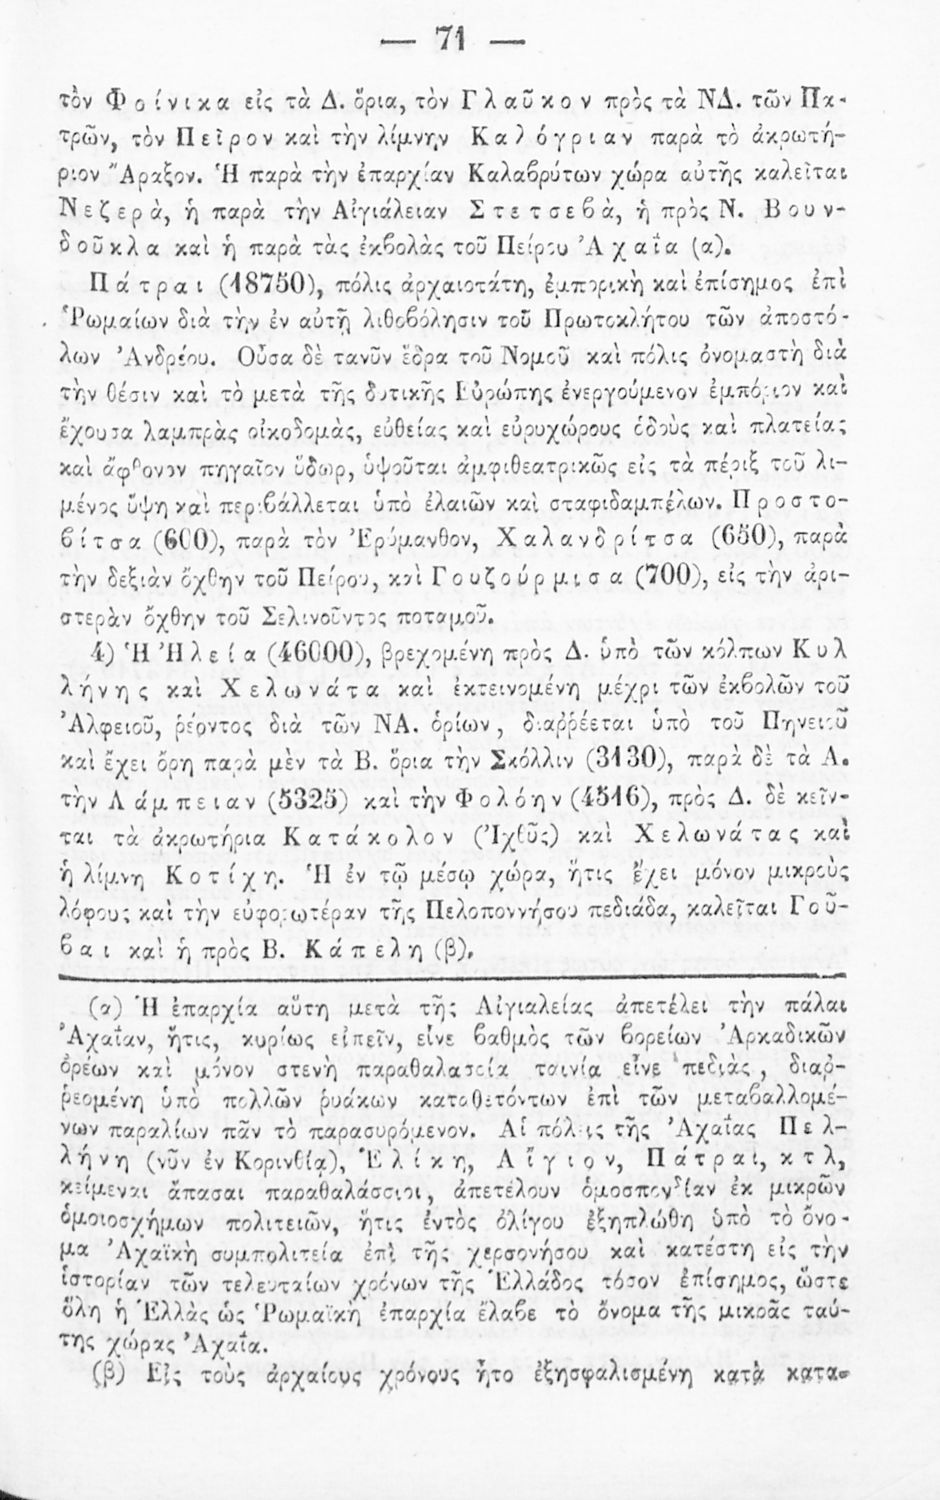 — 71 —
τὸν Φοίνικα εἰς τὰ Δ. ὅρια, τὸν Γλαῦκον πρὸς τὰ ΝΔ. τῶν Πα-
τρῶν, τὸν Πεῖρον καὶ τὴν λίμνην Καλόγριαν παρὰ τὸ ἀκρωτή-
ριον Ἄραξον. Ἡ παρὰ τὴν ἐπαρχίαν Καλαβρύτων χώρα αὐτῆς καλεῖται
Νεζερὰ, ἡ παρὰ τὴν Αἰγιάλειαν Στετσεβὰ, ἡ πρὸς Ν. Βουν-
δοῦκλα καὶ ἡ παρὰ τὰς ἐκβολὰς τοῦ Πείρου Ἀχαΐα (α).
Πάτραι (18750), πόλις ἀρχαιοτάτη, ἐμπορικὴ καὶ ἐπίσημος ἐπὶ
Ῥωμαίων διὰ τὴν ἐν αὐτῇ λιθοβόλησιν τοῦ Πρωτοκλήτου τῶν ἀποστό-
λων Ἀνδρέου. Οὖσα δὲ τανῦν ἕδρα τοῦ Νομοῦ καὶ πόλις ὀνομαστὴ διὰ
τὴν θέσιν καὶ τὸ μετὰ τῆς δυτικῆς Εὐρώπης ἐνεργούμενον ἐμπόριον καὶ
ἔχουσα λαμπρὰς οἰκοδομὰς, εὐθείας καὶ εὐρυχώρους ὁδοὺς καὶ πλατείας
καὶ ἄφθονον πηγαῖον ὕδωρ, ὑψοῦται ἀμφιθεατρικῶς εἰς τὰ πέριξ τοῦ λι-
μένος ὕψη καὶ περιβάλλεται ὑπὸ ἐλαιῶν καὶ σταφιδαμπέλων. Προστο-
βίτσα (600), παρὰ τὸν Ἐρύμανθον, Χαλανδρίτσα (650), παρὰ
τὴν δεξιὰν ὄχθην τοῦ Πείρου, καὶ Γουζούρμισα (700), εἰς τὴν ἀρι-
στερὰν ὄχθην τοῦ Σελινοῦντος ποταμοῦ.
4) Ἡ Ἠλεία (46000), βρεχομένη πρὸς Δ. ὑπὸ τῶν κόλπων Κυλ
λήνης καὶ Χελωνάτα καὶ ἐκτεινομένη μέχρι τῶν ἐκβολῶν τοῦ
Ἀλφειοῦ, ῥέοντος διὰ τῶν ΝΑ. ὁρίων, διαῤῥέεται ὑπὸ τοῦ Πηνειοῦ
καὶ ἔχει ὄρη παρὰ μὲν τὰ Β. ὅρια τὴν Σκόλλιν (3130), παρὰ δὲ τὰ Α.
τὴν Λάμπειαν (5325) καὶ τὴν Φολόην (4516), πρὸς Δ. δὲ κεῖν-
ται τὰ ἀκρωτήρια Κατάκολον (Ἰχθῦς) καὶ Χελωνάτας καὶ
ἡ λίμνη Κοτίχη. Ἡ ἐν τῷ μέσῳ χώρα, ἥτις ἔχει μόνον μικροὺς
λόφους καὶ τὴν εὐφορωτέραν τῆς Πελοποννήσου πεδιάδα, καλεῖται Γοῦ-
βαι καὶ ἡ πρὸς Β. Κάπελη (β).
(α) Ἡ ἐπαρχία αὕτη μετὰ τῆς Αἰγιαλείας ἀπετέλει τὴν πάλαι
Ἀχαΐαν, ἥτις, κυρίως εἰπεῖν, εἶνε βαθμὸς τῶν βορείων Ἀρκαδικῶν
ὀρέων καὶ μόνον στενὴ παραθαλασσία ταινία εἶνε πεδιὰς, διαῤ-
ῥεομένη ὑπὸ πολλῶν ῥυάκων καταθετόντων ἐπὶ τῶν μεταβαλλομέ-
νων παραλίων πᾶν τὸ παρασυρόμενον. Αἱ πόλεις τῆς Ἀχαΐας Πελ-
λήνη (νῦν ἐν Κορινθίᾳ), Ἑλίκη, Αἴγιον, Πάτραι, κτλ,
κείμεναι ἅπασαι παραθαλάσσιοι, ἀπετέλουν ὁμοσπονδίαν ἐκ μικρῶν
ὁμοιοσχήμων πολιτειῶν, ἥτις ἐντὸς ὀλίγου ἐξηπλώθη ὑπὸ τὸ ὄνο-
μα Ἀχαϊκὴ συμπολιτεία ἐπὶ τῆς χερσονήσου καὶ κατέστη εἰς τὴν
ἱστορίαν τῶν τελευταίων χρόνων τῆς Ἑλλάδος τόσον ἐπίσημος, ὥστε
ὅλη ἡ Ἑλλὰς ὡς Ῥωμαϊκὴ ἐπαρχία ἔλαβε τὸ ὄνομα τῆς μικρᾶς ταύ-
της χώρας Ἀχαΐα.
(β) Εἰς τοὺς ἀρχαίους χρόνους ἦτο ἐξησφαλισμένη κατὰ κατα-